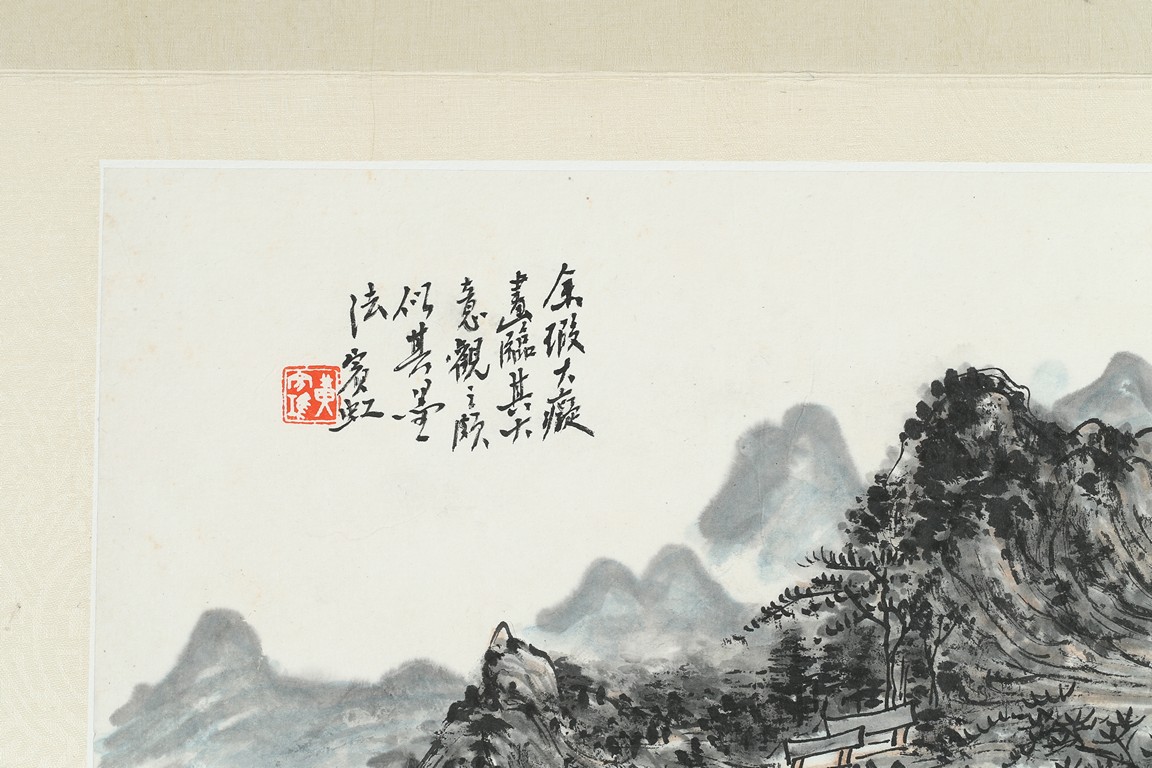 余瑕大癡
畫臨其大
意觀之頗
似其墨
法賓虹
黃賓虹